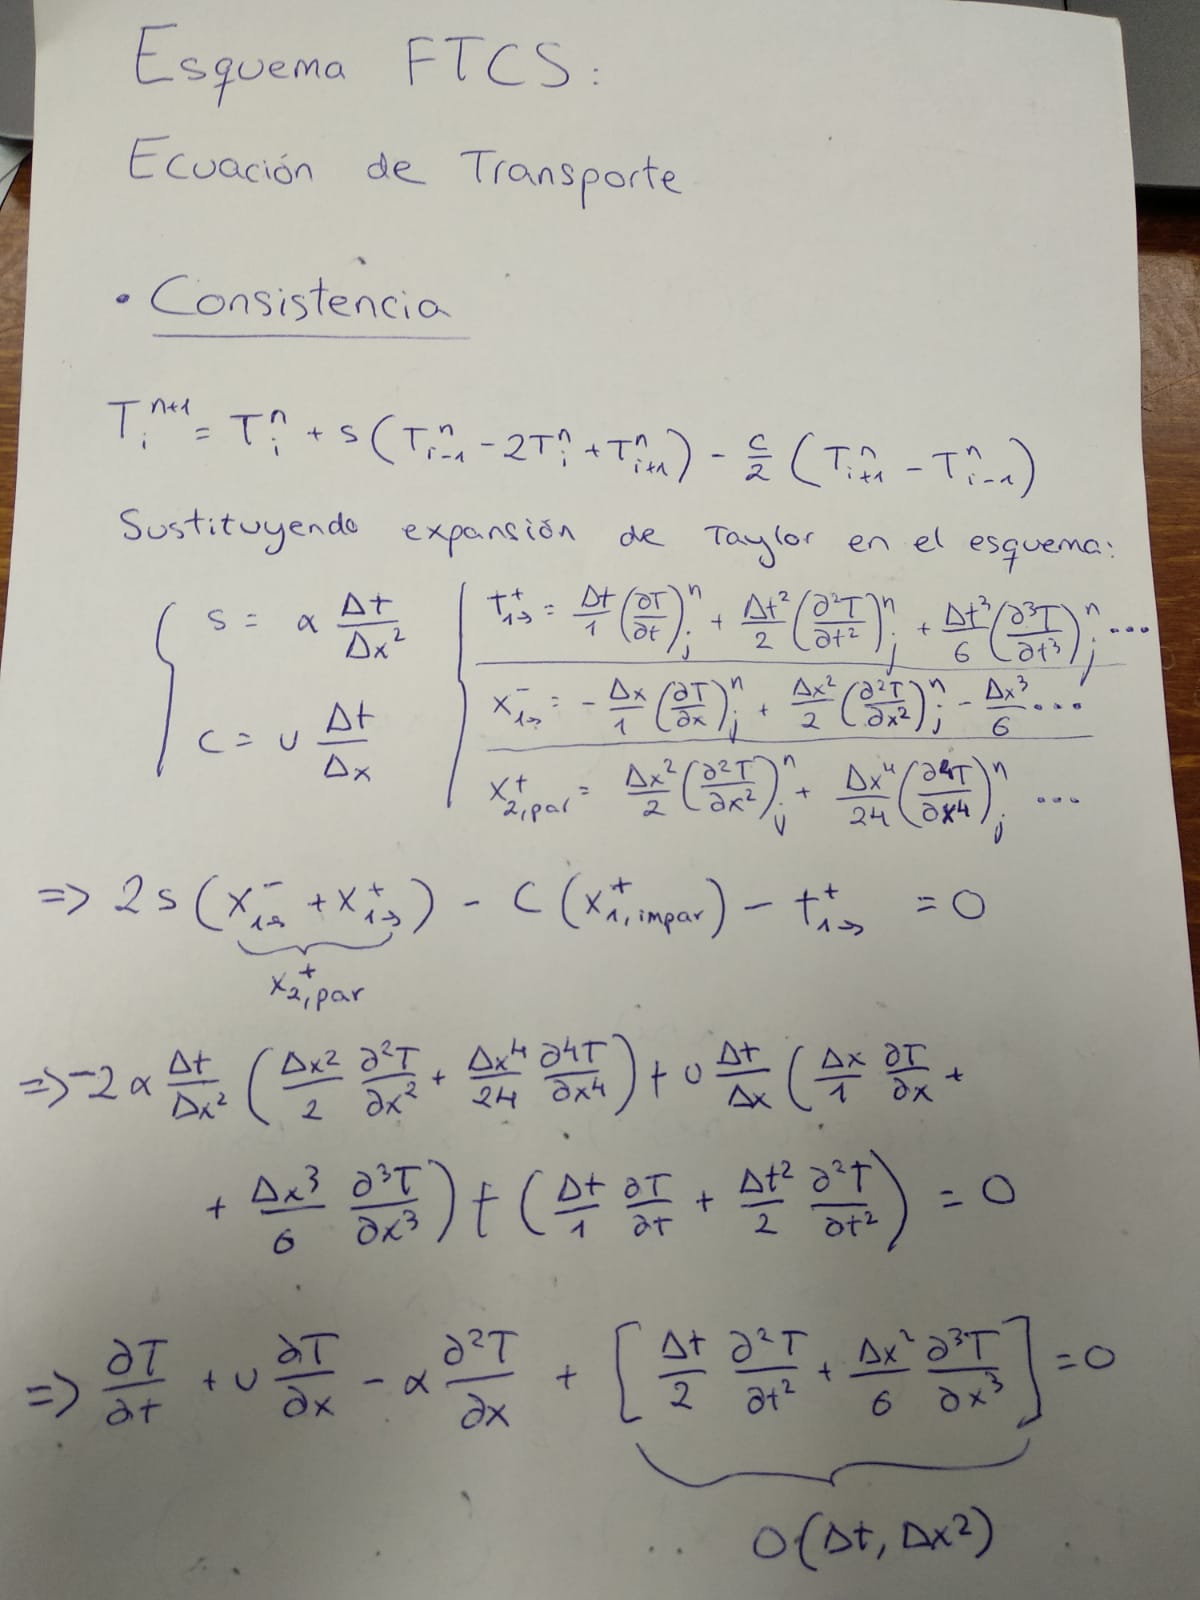 Esquema FTCS:
Ecuación de Transporte
• Consistencia
T_i^{n+1} = T_i^n + s(T_{i-1}^n - 2T_i^n + T_{i+1}^n) - c/2 (T_{i+1}^n - T_{i-1}^n)
Sustituyendo expansión de Taylor en el esquema:
s = α Δt/Δx²
c = u Δt/Δx
t_{1→}^+ = Δt/1 (∂T/∂t)_j^n + Δt²/2 (∂²T/∂t²)_j^n + Δt³/6 (∂³T/∂t³)_j^n ...
x_{1→}^- = - Δx/1 (∂T/∂x)_j^n + Δx²/2 (∂²T/∂x²)_j^n - Δx³/6 ...
x_{2,par}^+ = Δx²/2 (∂²T/∂x²)_j^n + Δx⁴/24 (∂⁴T/∂x⁴)_j^n ...
=> 2s(x_{1→}^- + x_{1→}^+) - c(x_{1,impar}^+) - t_{1→}^+ = 0
x_{2,par}^+
=> -2α Δt/Δx² (Δx²/2 ∂²T/∂x² + Δx⁴/24 ∂⁴T/∂x⁴) + u Δt/Δx (Δx/1 ∂T/∂x +
+ Δx³/6 ∂³T/∂x³) + (Δt/1 ∂T/∂t + Δt²/2 ∂²T/∂t²) = 0
=> ∂T/∂t + u ∂T/∂x - α ∂²T/∂x + [Δt/2 ∂²T/∂t² + Δx²/6 ∂³T/∂x³] = 0
O(Δt, Δx²)